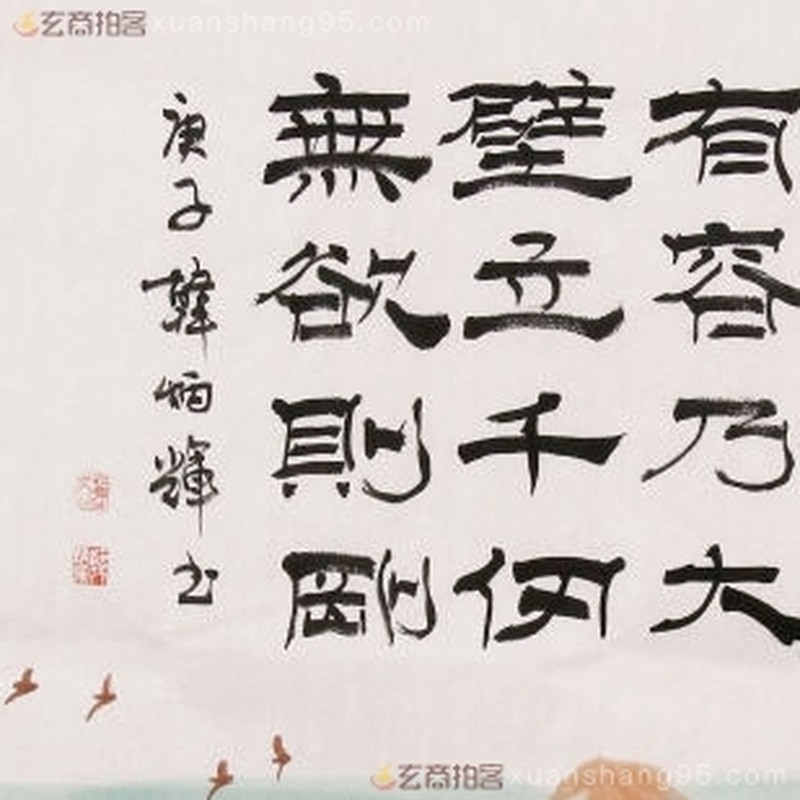 玄商拍客 xuanshang95.com
有容乃大
壁立千仞
無欲則剛
庚子韓炳輝书
玄商拍客 xuanshang95.com